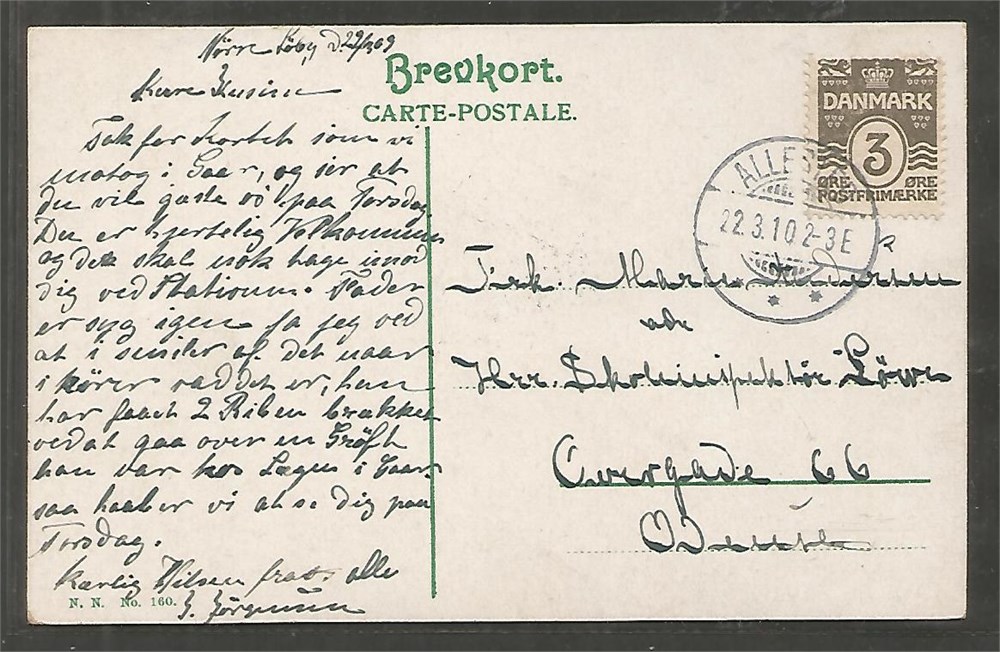 Nørre
Brevkort.
CARTE-POSTALE.
Kære Kusine
Tak for Kortet som vi
motog i Gaar, og ser at
du vil gæste os paa Torsdag
Du er hjertelig Velkommen
og det skal nok tage imod
dig ved Stationen. Fader
er syg igen
at i det naar
i kører vad det er, han
har faaet 2 Riben brækket
ved at gaa over en Grøft
han var hos Lægen i Gaar
saa haaber vi at se dig paa
Torsdag.
Kærlig Hilsen fra alle
Jørgensen
N. N. No. 160.
DANMARK
3
ØRE ØRE
POSTFRIMÆRKE
22.3.10 2-3E
Frk. Maren
adr
Hrr. Skoleinspektör Löwe
Overgade 66
Odense